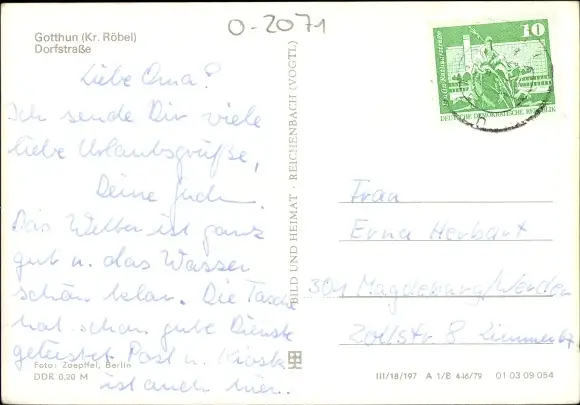 O-2071
Gotthun (Kr. Röbel)
Dorfstraße
Liebe Oma!
Ich sende Dir viele
liebe Urlaubsgrüße,
Deine
Das Wetter ist ganz
gut u. das Wasser
schön klar. Die Tasche
hat schon gute Dienste
geleistet. Post u. Kiosk
ist auch hier.
Foto: Zoepffel, Berlin
DDR 0,20 M
BILD UND HEIMAT · REICHENBACH (VOGTL)
10
DEUTSCHE DEMOKRATISCHE REPUBLIK
Frau
Erna Herbart
301 Magdeburg/Werder
Zollstr. 8
III/18/197 A 1/B 446/79 01 03 09 054